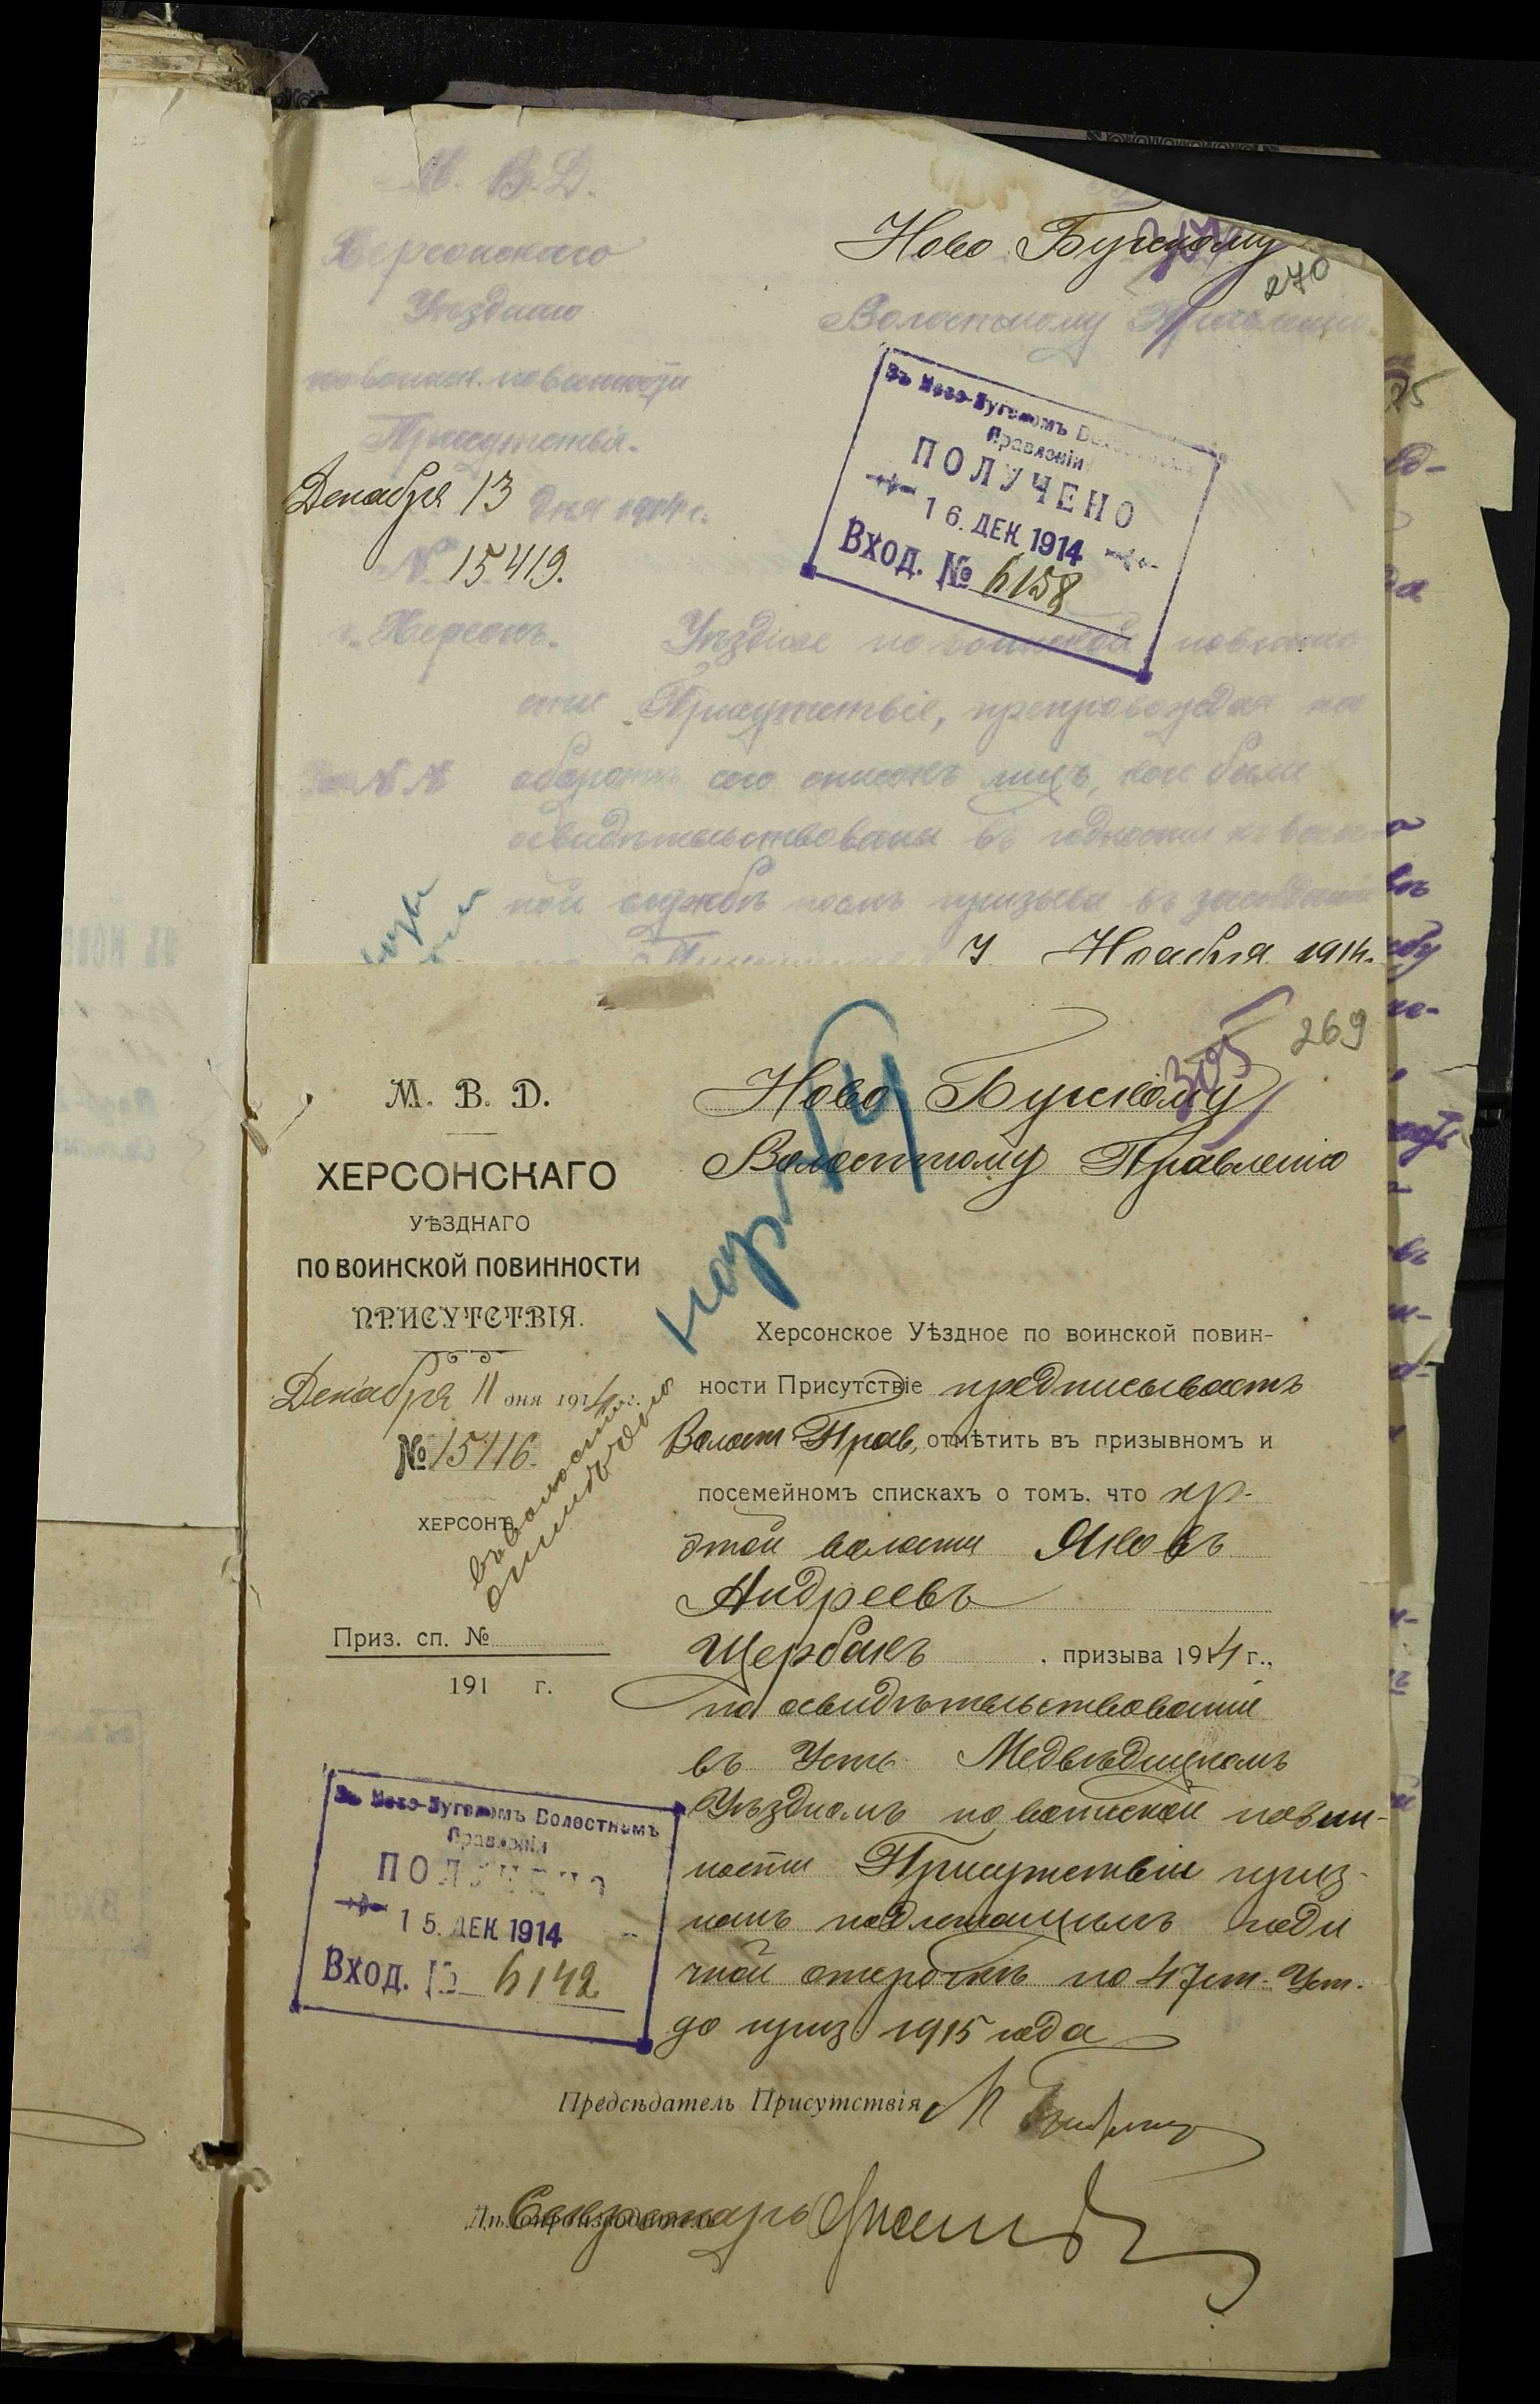 М. В. Д.
Херсонскаго
Уѣзднаго
по воинск. повинности
Присутствія.
Декабря 13 дня 1914 г.
№ 15419.
г. Херсонъ.
Ново Бугскому
270
Волостному Правленію
Въ Ново-Бугскомъ Волостномъ
Правленіи
ПОЛУЧЕНО
16. ДЕК. 1914
Вход. № 6158
Уѣздное по воинской повинно
сти Присутствіе, препровождая на
оборотѣ сего списокъ лицъ, кои были
освидѣтельствованы въ годности къ воен
ной службѣ послѣ призыва въ засѣданіи
7 Ноября 1914.
269
305
М. В. Д.
ХЕРСОНСКАГО
УѢЗДНАГО
ПО ВОИНСКОЙ ПОВИННОСТИ
ПРИСУТСТВІЯ.
Декабря 11 дня 1914 г.
№ 15116.
ХЕРСОНЪ.
Приз. сп. №
191 г.
Ново Бугскому
Волостному Правленію
Херсонское Уѣздное по воинской повин-
ности Присутствіе предписываетъ
Волост Прав, отмѣтить въ призывномъ и
посемейномъ спискахъ о томъ, что кр.
этой волости Яковъ
Андреевъ
Щербакъ , призыва 1914 г.,
по освидѣтельствованіи
въ Усть Медвѣдицкомъ
Уѣздномъ по воинской повин-
ности Присутствіи приз-
нанъ подлежащимъ годи
чной отсрочкѣ по 47 ст. Уст.
до приз. 1915 года
Въ Ново-Бугскомъ Волостнымъ
Правленіи
ПОЛУЧЕНО
15. ДЕК 1914
Вход. № 6142
Предсѣдатель Присутствія
Секретарь